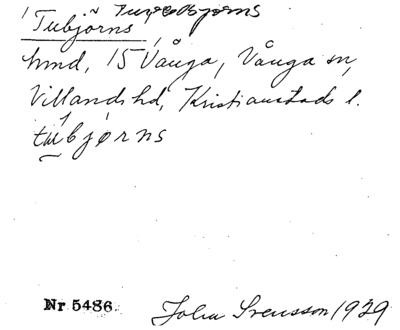 Tubjörns
hmd, 15 Vånga, Vånga sn,
Villands hd, Kristianstads l.
tubjørns
Nr 5486. John Svensson 1929